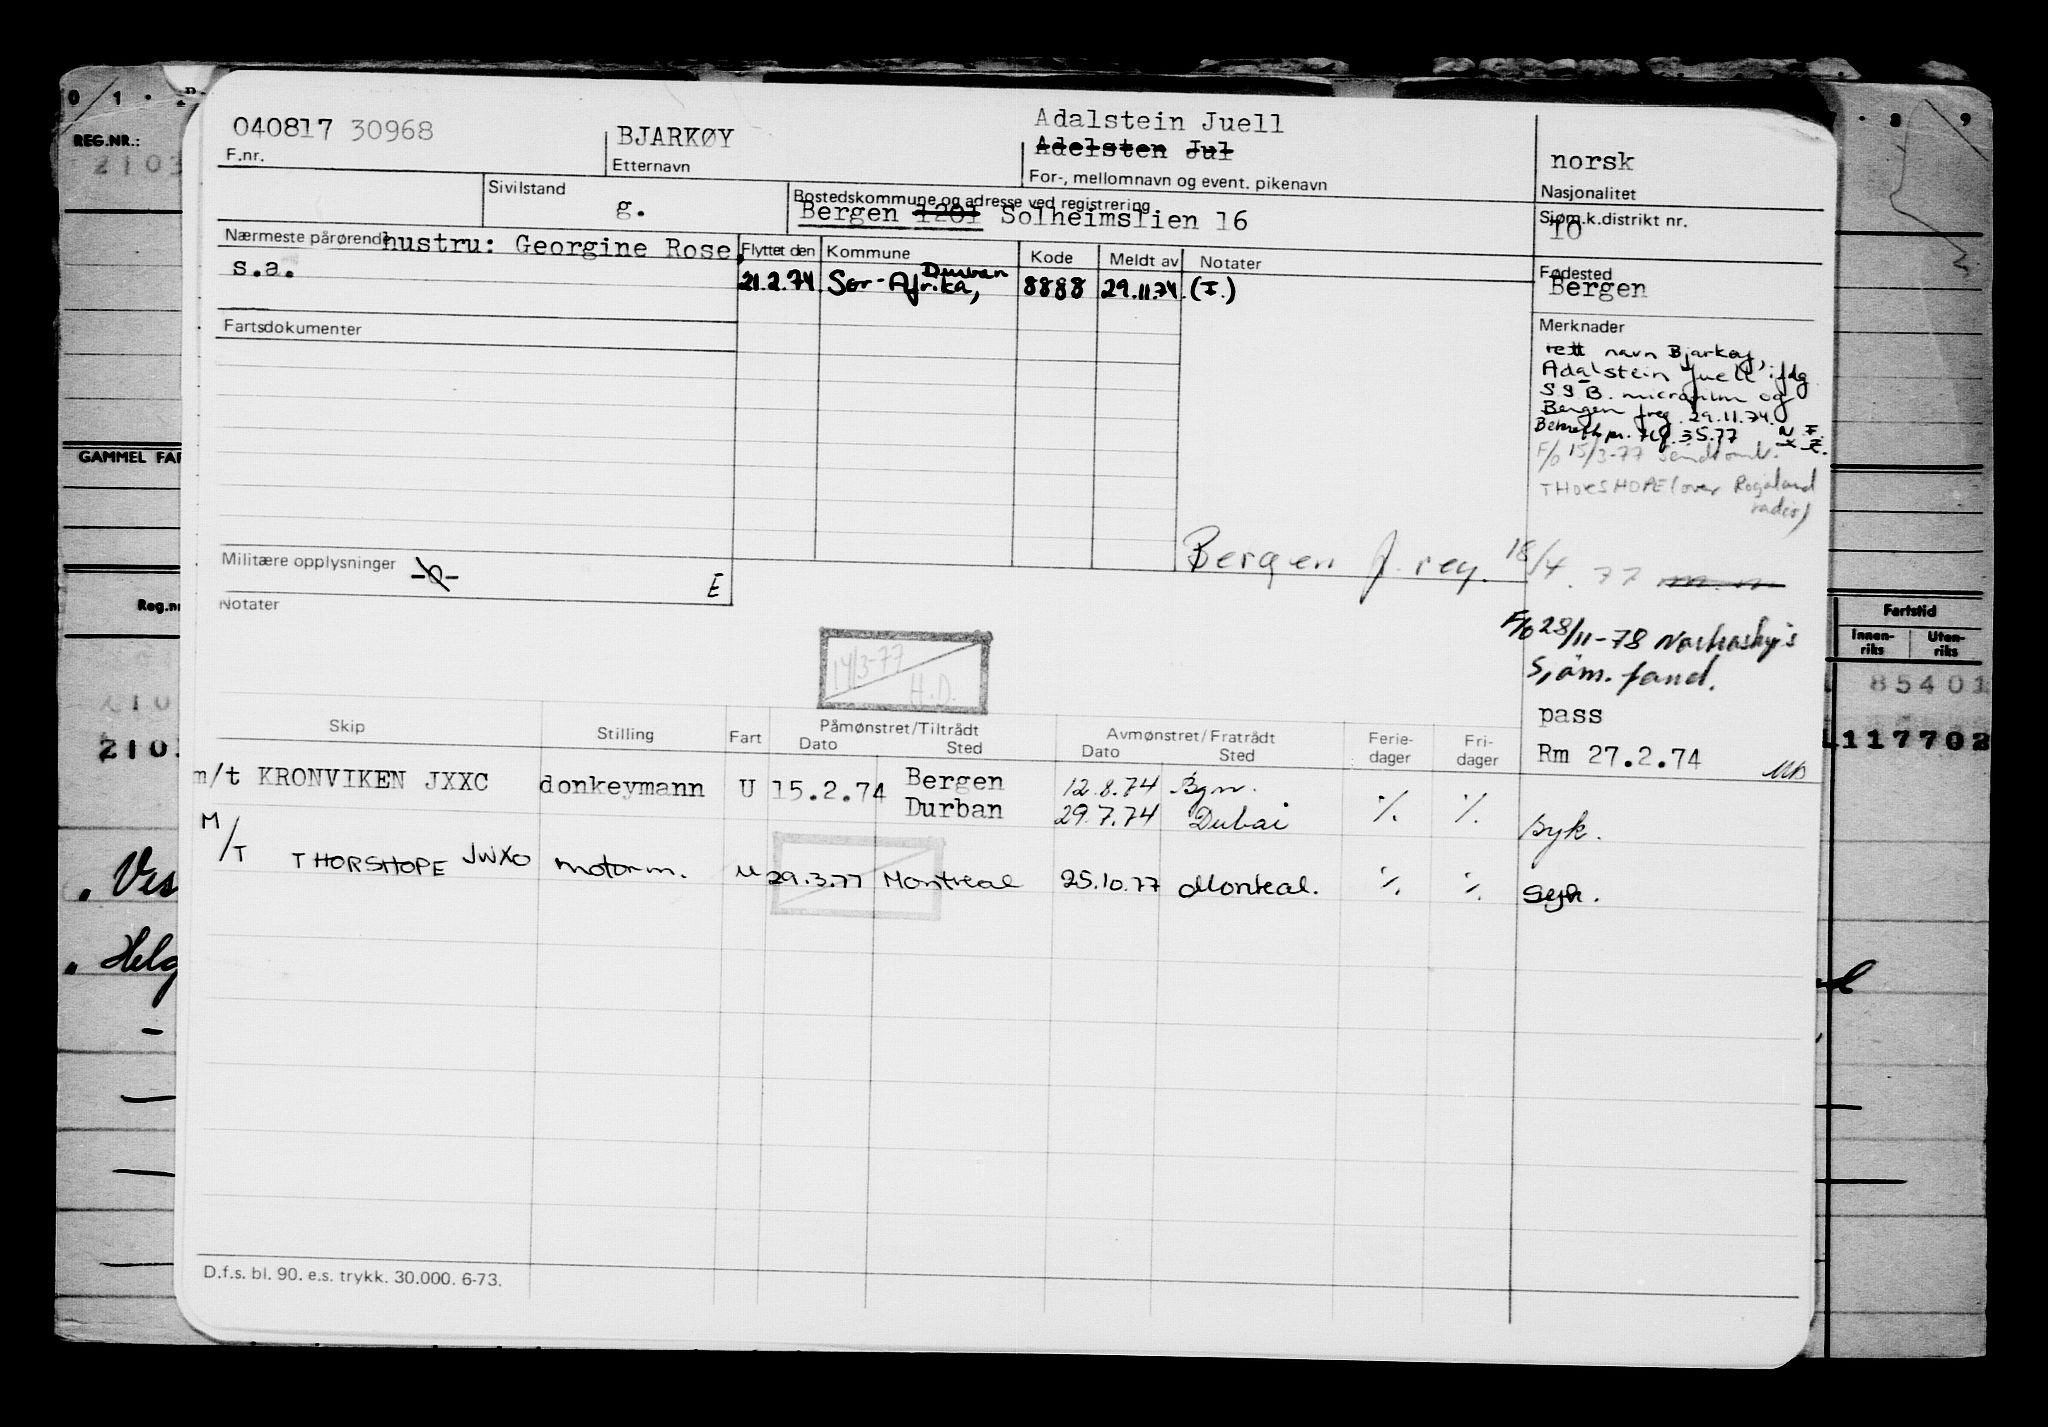 0 1
8 9
REG.NR.:
040817 30968
F.nr.
BJARKØY
Etternavn
Adalstein Juell
Adelsten Jul
For-, mellomnavn og event. pikenavn
norsk
Nasjonalitet
Sivilstand
g.
Bostedskommune og adresse ved registrering
Bergen 1201 Solheimslien 16
Sjøm.k.distrikt nr.
10
Nærmeste pårørende
hustru: Georgine Rose,
s.a.
Flyttet den
Kommune
Kode
Meldt av
Notater
21.2.74
Sør-Afrika, Durban
8888
29.11.74
(I.)
Fødested
Bergen
Fartsdokumenter
Merknader
rett navn Bjarkøy,
Adalstein Juell ifdg
S S B. microfilm og
Bergen freg. 29.11.74.
F/o 15/3-77 Sendt
THORSHOPE (over Rogaland
radio)
GAMMEL FAR
Militære opplysninger
E
Bergen f. reg. 18/4. 77
Notater
Reg.n
Fartstid
Innen-
riks
Uten-
riks
F/o 28/11-78
Sjøm. fond.
14/3-77
H.D.
85401
117702
2103
210
pass
Rm 27.2.74
Skip
Stilling
Fart
Påmønstret/Tiltrådt
Dato
Sted
Avmønstret/Fratrådt
Dato
Sted
Ferie-
dager
Fri-
dager
m/t KRONVIKEN JXXC donkeymann U 15.2.74 Bergen 12.8.74 Bgn.
Durban 29.7.74 Dubai ./. ./. syk.
M/T THORSHOPE JWXO motorm. U 29.3.77 Montreal 25.10.77 Montreal. ./. ./. Syk.
Ves
Helg
D.f.s. bl. 90. e.s. trykk. 30.000. 6-73.